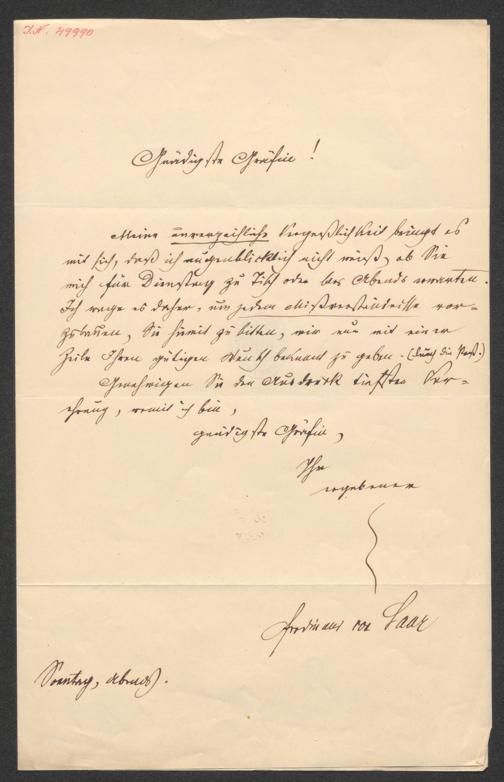 I.N. 49990
Gnädigste Gräfin!
Meine unverzeihliche Vergeßlichkeit bringt es
mit sich, daß ich augenblicklich nicht weiß, ob Sie
mich für Dienstag zu Tisch oder des Abends erwarten.
Ich wage es daher, um jedem Mißverständnisse vor-
zubauen, Sie hiemit zu bitten, mir nur mit einer
Zeile Ihren gütigen Wunsch bekannt zu geben. (durch die Post.)
Genehmigen Sie den Ausdruck tiefster Ver-
ehrung, womit ich bin,
gnädigste Gräfin,
Ihr
ergebener
Ferdinand von Saar
Sonntag, Abends.